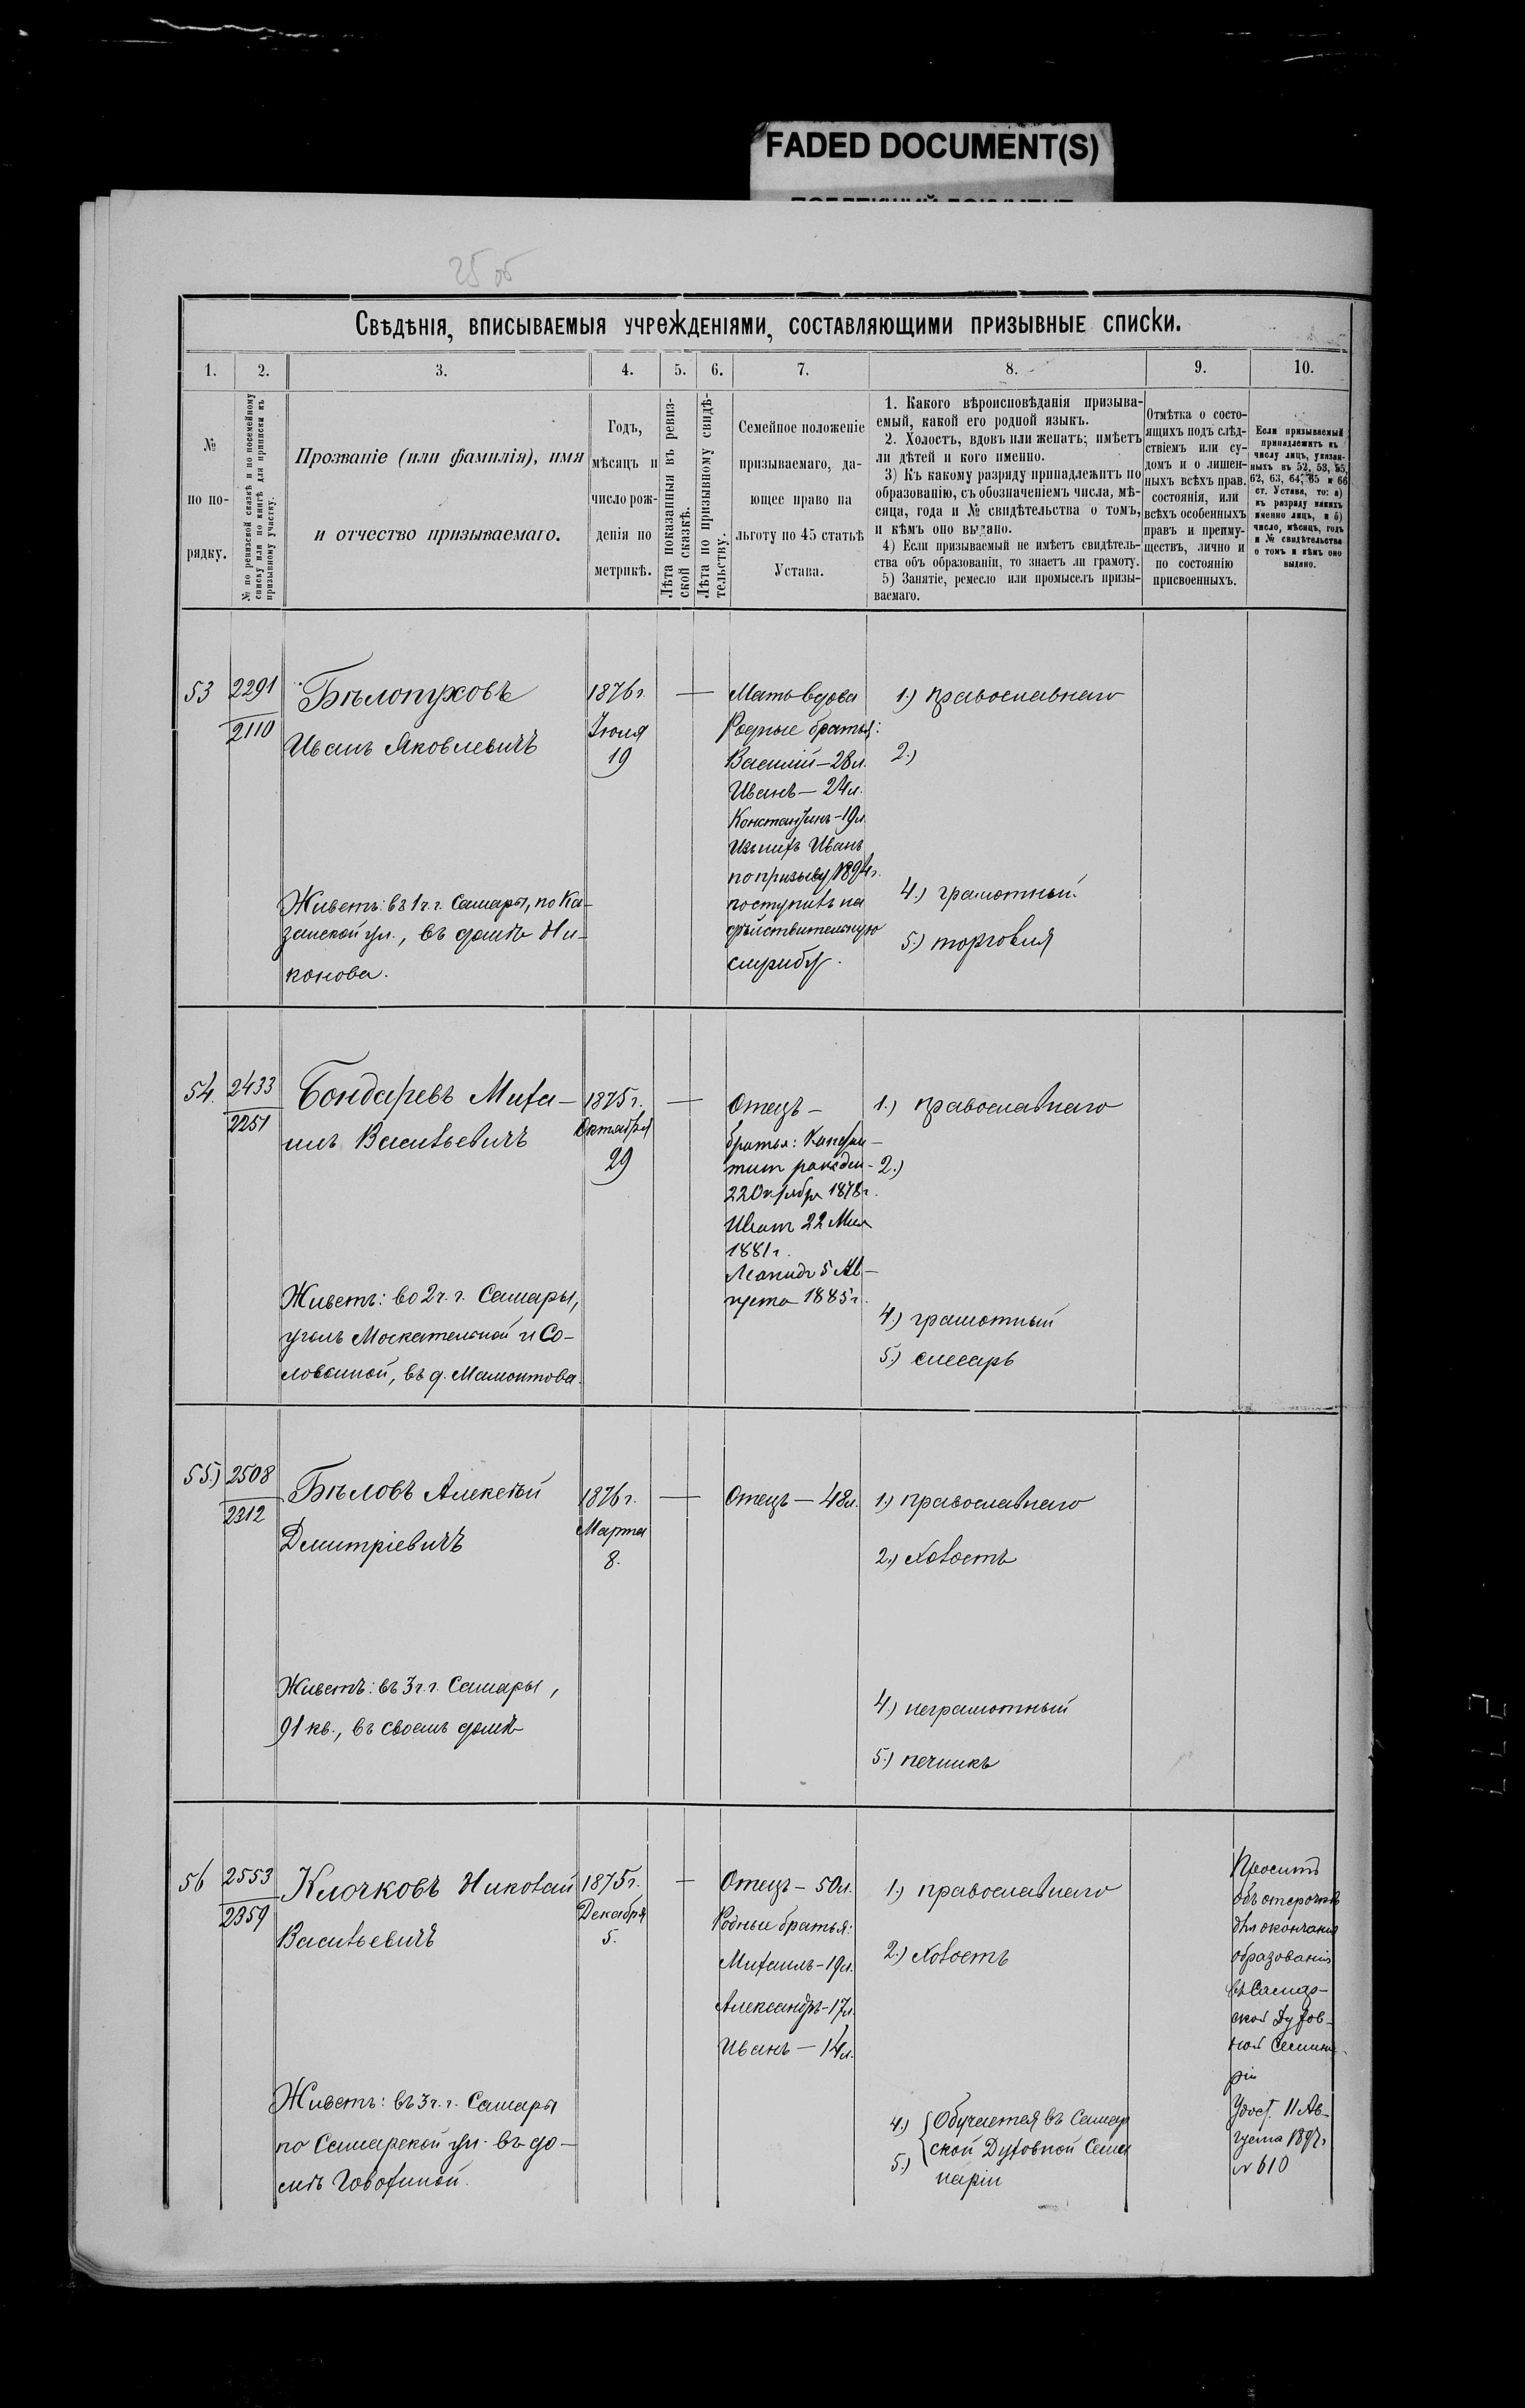 FADED DOCUMENT(S)
25 об
Свѣдѣнія, вписываемыя учрежденіями, составляющими призывные списки.
1.
2.
3.
4.
5.
6.
7.
8.
9.
10.
№
по по-
рядку.
№ по ревизской сказкѣ и по посемейному
списку или по книгѣ для приписки къ
призывному участку.
Прозваніе (или фамилія), имя
и отчество призываемаго.
Годъ,
мѣсяцъ и
число рож-
денія по
метрикѣ.
Лѣта показанныя въ ревиз-
ской сказкѣ.
Лѣта по призывному свидѣ-
тельству.
Семейное положеніе
призываемаго, да-
ющее право на
льготу по 45 статьѣ
Устава.
1. Какого вѣроисповѣданія призыва-
емый, какой его родной языкъ.
2. Холостъ, вдовъ или женатъ; имѣетъ
ли дѣтей и кого именно.
3) Къ какому разряду принадлежитъ по
образованію, съ обозначеніемъ числа, мѣ-
сяца, года и № свидѣтельства о томъ,
и кѣмъ оно выдано.
4) Если призываемый не имѣетъ свидѣтель-
ства объ образованіи, то знаетъ ли грамоту.
5) Занятіе, ремесло или промыселъ призы-
ваемаго.
Отмѣтка о состо-
ящихъ подъ слѣд-
ствіемъ или су-
домъ и о лишен-
ныхъ всѣхъ прав.
состоянія, или
всѣхъ особенныхъ
правъ и преиму-
ществъ, лично и
по состоянію
присвоенныхъ.
Если призываемый
принадлежитъ къ
числу лицъ, указан-
ныхъ въ 52, 53, 55,
62, 63, 64, 65 и 66
ст. Устава, то: а)
къ разряду какихъ
именно лицъ, и б)
число, мѣсяцъ, годъ
и № свидѣтельства
о томъ и кѣмъ оно
выдано.
53
2291
2110
Бѣлопуховъ
Иванъ Яковлевичъ
Живетъ: въ 1 ч. г. Самары, по Ка-
занской ул., въ домѣ Ни-
конова.
1876 г.
Іюля
19
—
Мать вдова
Родные братья:
Василій — 28 л.
Иванъ — 24 л.
Константинъ - 19 л.
Изъ нихъ Иванъ
по призыву 1894 г.
поступилъ на
дѣйствительную
службу.
1.) православнаго
2.)
4.) грамотный
5.) торговля
54.
2433
2251
Бондаревъ Миха-
илъ Васильевичъ
Живетъ: во 2 ч. г. Самары,
уголъ Москательной и Со-
ловьиной, въ д. Мамонтова.
1875 г.
Октября
29
—
Отецъ —
братья:
22 Октября 1878 г.
Иванъ 22 Мая
1881 г.
Леонидъ 5 Ав-
густа 1885 г.
1.) православнаго
2.)
4.) грамотный
5.) слесарь
55.)
2508
2312
Бѣловъ Алексѣй
Дмитріевичъ
Живетъ: въ 3 ч. г. Самары,
91 кв., въ своемъ домѣ
1876 г.
Марта
8.
—
Отецъ — 48 л.
1.) православнаго
2.) Холостъ
4.) неграмотный
5.) печникъ
56
2553
2359
Клочковъ Николай
Васильевичъ
Живетъ: въ 3 ч. г. Самары
по Самарской ул. въ до-
мѣ
1875 г.
Декабря
5.
—
Отецъ — 50 л.
Родные братья:
Михаилъ - 19 л.
Александръ - 17 л.
Иванъ — 14 л.
1.) православнаго
2.) Холостъ
4.) Обучается въ Самар
ской Духовной Семи
5.) наріи
Проситъ
объ отсрочкѣ
для окончанія
образованія
въ Самар-
ской Духов-
ной Семина-
ріи
Удост. 11 Ав-
густа 1897 г
№ 610
277